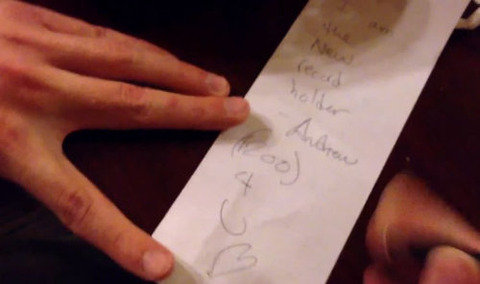 I am
the
New
record
holder
- Andrew
4